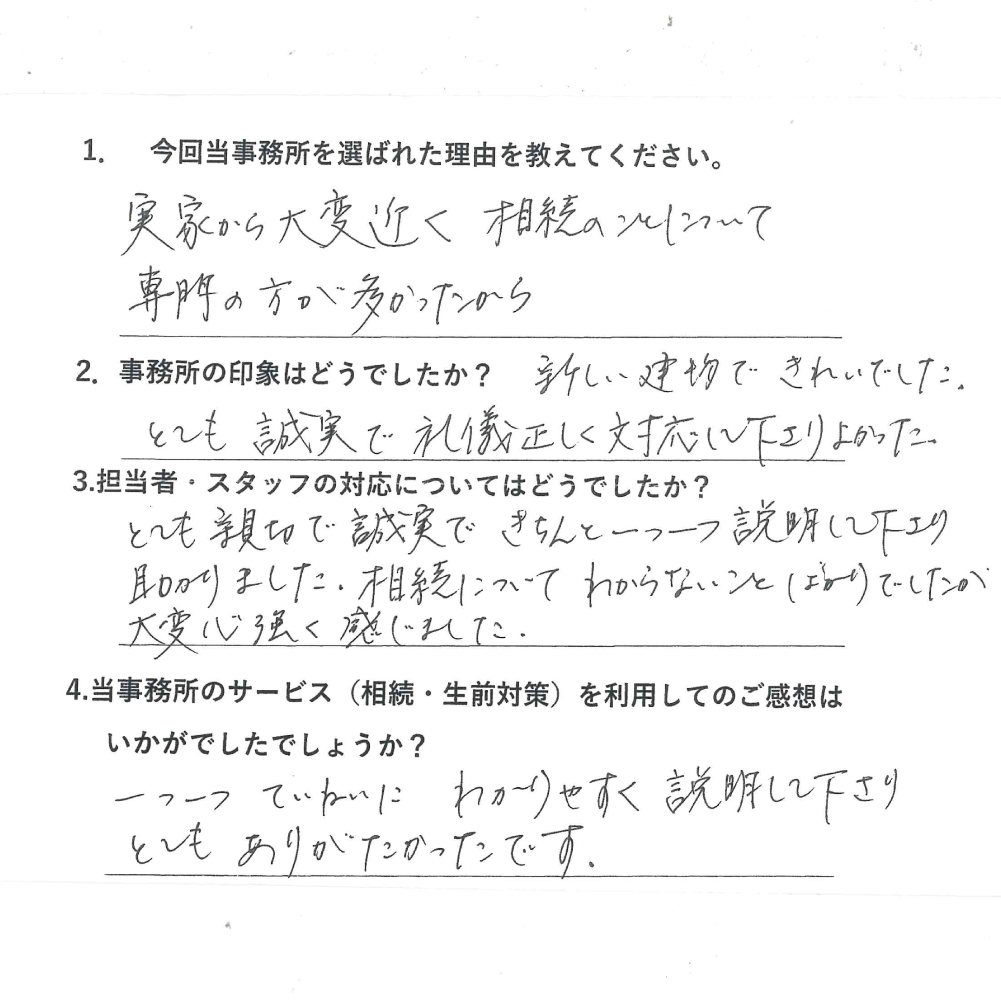 1. 今回当事務所を選ばれた理由を教えてください。
実家から大変近く 相続のことについて
専門の方が多かったから
2. 事務所の印象はどうでしたか? 新しい建物できれいでした。
とても誠実で礼儀正しく対応して下さりよかった。
3.担当者・スタッフの対応についてはどうでしたか?
とても親切で誠実できちんと一つ一つ説明して下さり
助かりました。相続について わからないことばかりでしたが
大変心強く感じました。
4.当事務所のサービス(相続・生前対策)を利用してのご感想は
いかがでしたでしょうか?
一つ一つ ていねいに わかりやすく説明して下さり
とても ありがたかったです。